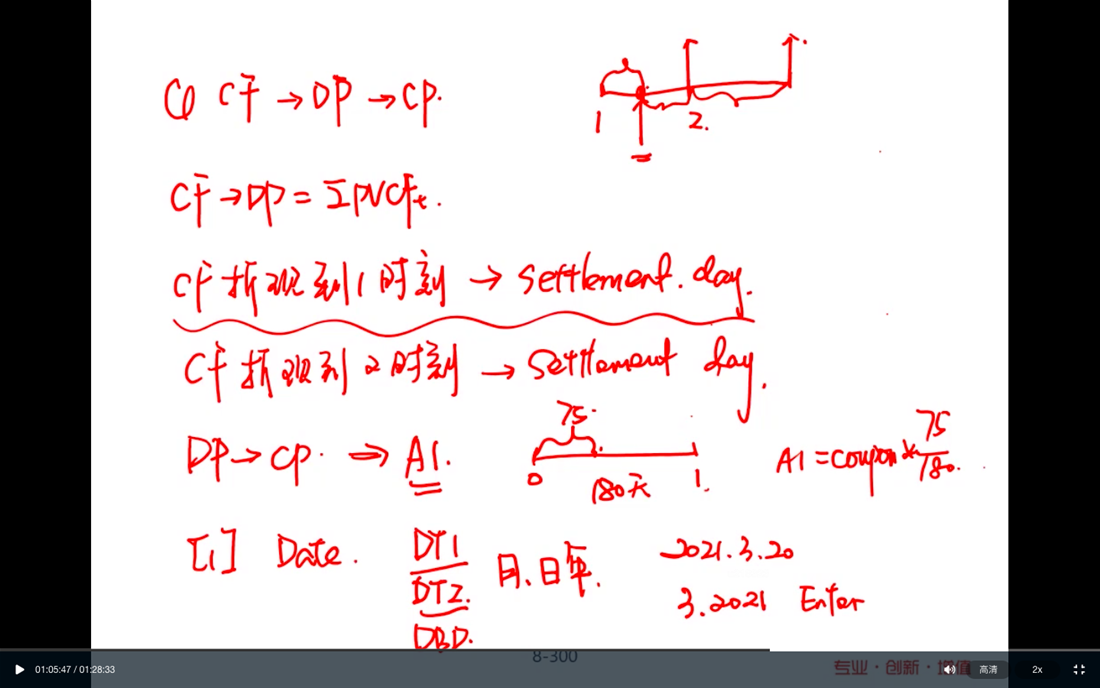 ① CF → DP → CP.
1 2.
CF → DP = ΣPVCFt.
CF折现到1时刻 → Settlement. day.
CF折现到2时刻 → Settlement day.
75.
DP → CP. ⇒ AI.
0 180天 1.
AI = coupon * 75/180.
[1] Date.
DT1
DT2.
DBD.
月.日年.
2021.3.20
3.2021 Enter
8-300
专业·创新·增值
01:05:47 / 01:28:33
高清
2x